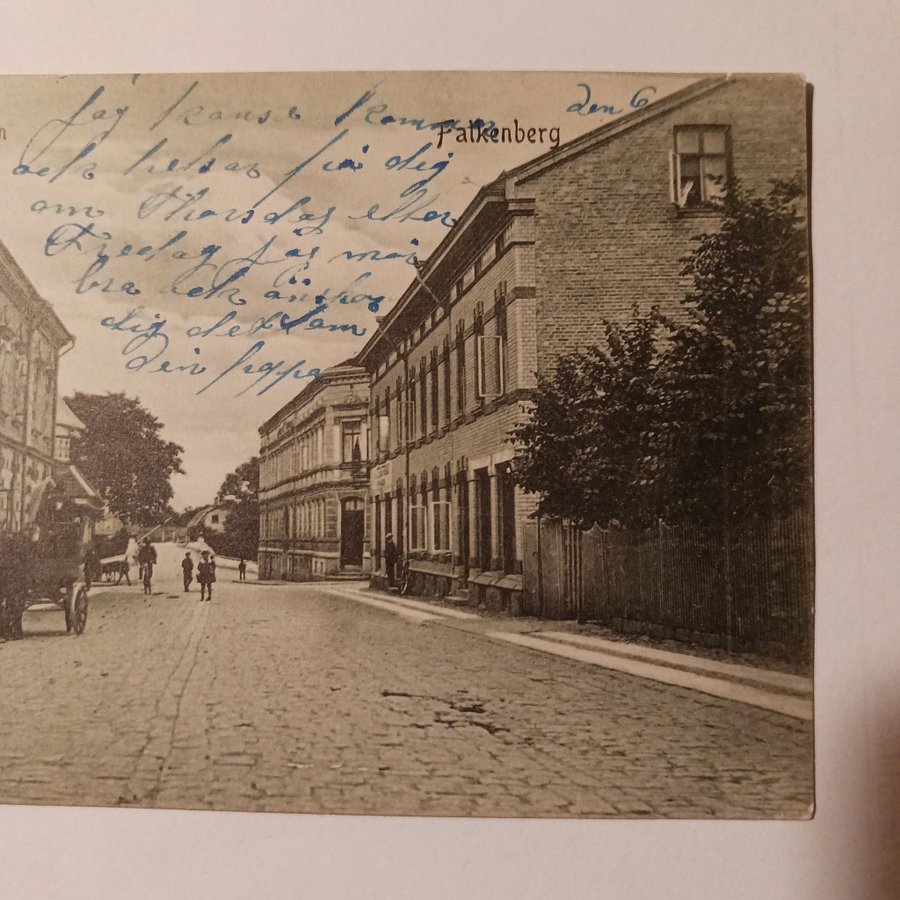 den 6
n
Falkenberg
Jag kanse kommer
ock helsar på dig
om Thorsdag eller
Fredag jag mår
bra ock önskar
dig det Sam
din pappa